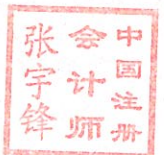 中国注册
会计师
张宇锋